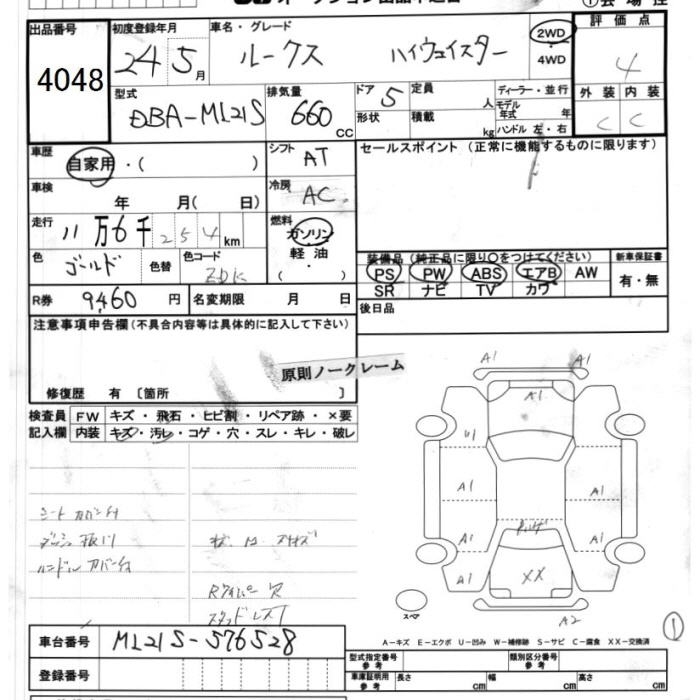 出品番号
4048
初度登録年月
24 5月
車名・グレード
ルークス ハイウェイスター
2WD
・
4WD
評価点
4
型式
DBA-ML21S
排気量
660
CC
ドア
5
定員
人
形状
積載
kg
ディーラー・並行
モデル年式 年
ハンドル 左・右
外装 内装
C C
車歴
自家用・( )
シフト
AT
セールスポイント (正常に機能するものに限ります)
車検
年 月( 日)
冷房
AC
走行
11万6千254km
燃料
ガソリン
軽油
( )
色
ゴールド
色替
色コード
ZDK
装備品 (純正品に限り○をつけてください)
PS PW ABS エアB AW
SR ナビ TV カワ
新車保証書
有・無
R券
9460円
名変期限 月 日
後日品
注意事項申告欄(不具合内容等は具体的に記入して下さい)
原則ノークレーム
修復歴 有 〔箇所 〕
検査員
記入欄
FW キズ・飛石・ヒビ割・リペア跡・×要
内装 キズ・汚レ・コゲ・穴・スレ・キレ・破レ
A1 A1
A1
U1
A1 A1
A1 A1
A1
XX
A2
スペア
シートカバー付
ハンドルカバー付
Rワイパー欠
1
車台番号
ML21S-576528
登録番号
A-キズ E-エクボ U-凹み W-補修跡 S-サビ C-腐食 XX-交換済
型式指定番号
参考
類別区分番号
参考
車庫証明用
参考
長さ cm
幅 cm
高さ cm